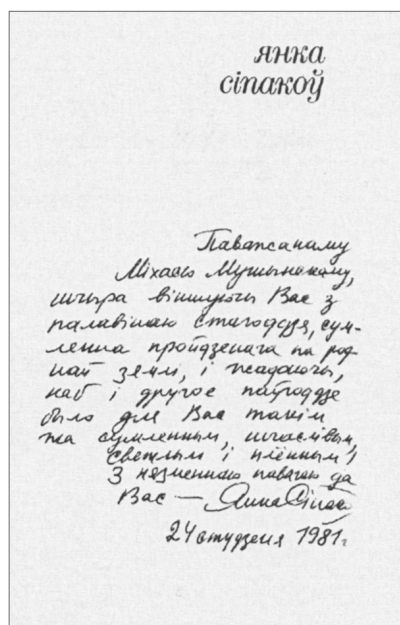 янка
сіпакоў
Паважанаму
Міхасю Мушынскаму,
шчыра віншуючы Вас з
палавінаю стагоддзя, сум-
ленна пройдзенага па род-
най зямлі, і жадаючы,
каб і другое паўстагоддзе
было для Вас такім
жа сумленным, шчаслівым,
светлым і плённым!
З нязменнаю павагаю да
Вас — Янка Сіпакоў
24 студзеня 1981 г.